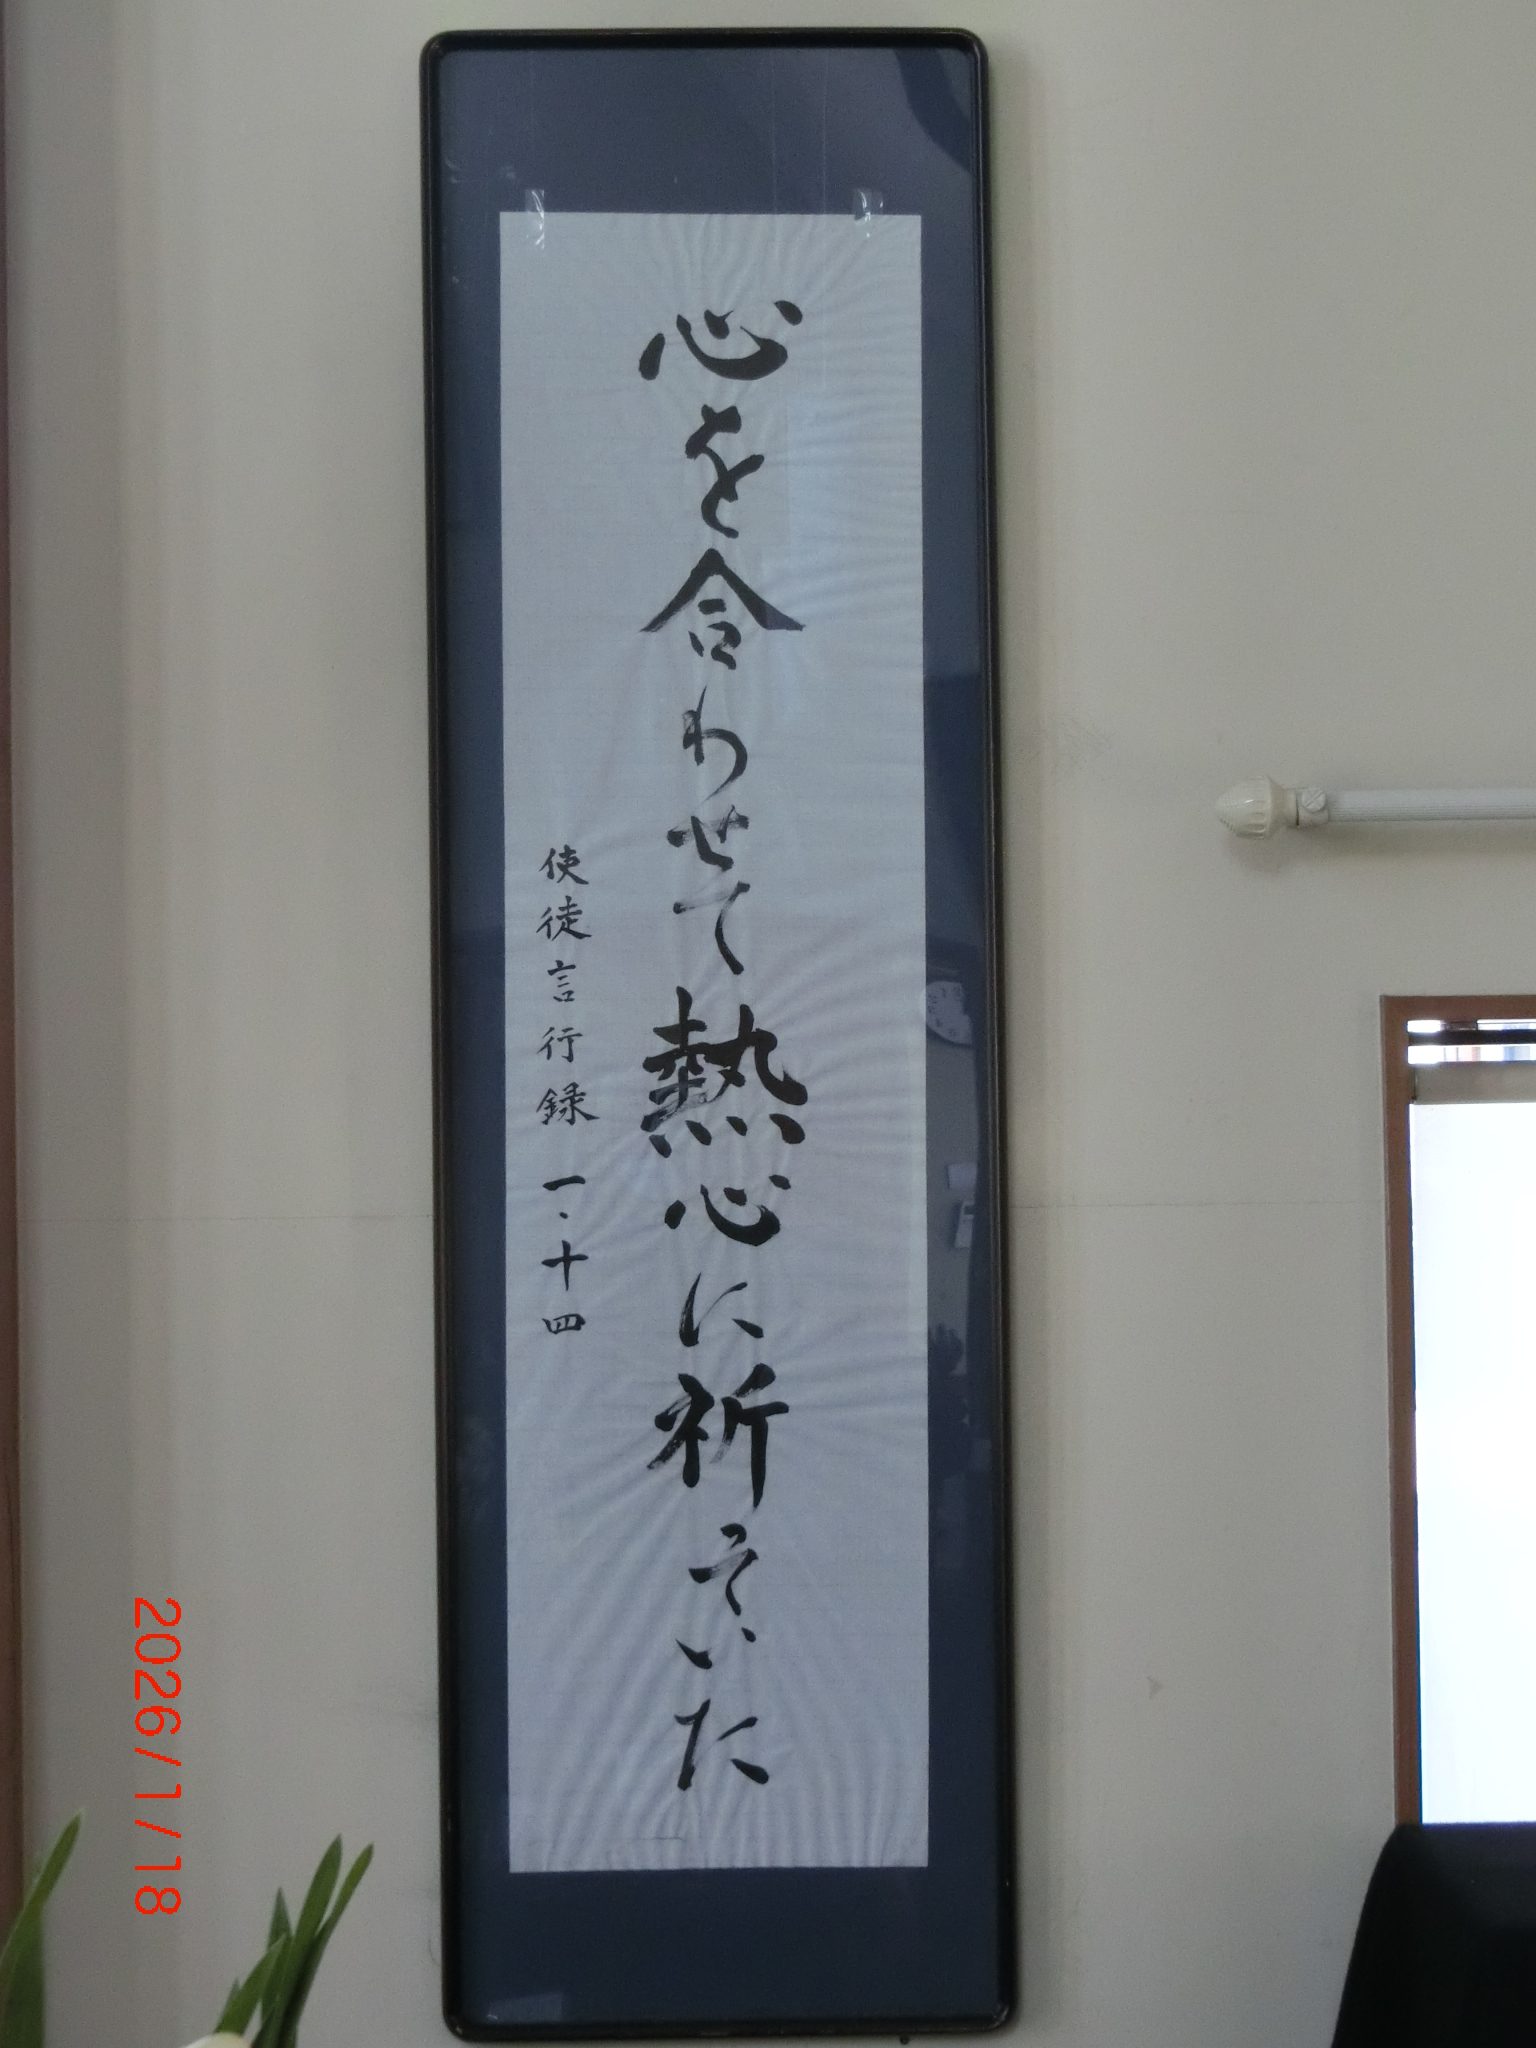 心を合わせて熱心に祈っていた
使徒言行録 一・十四
2026/1/18